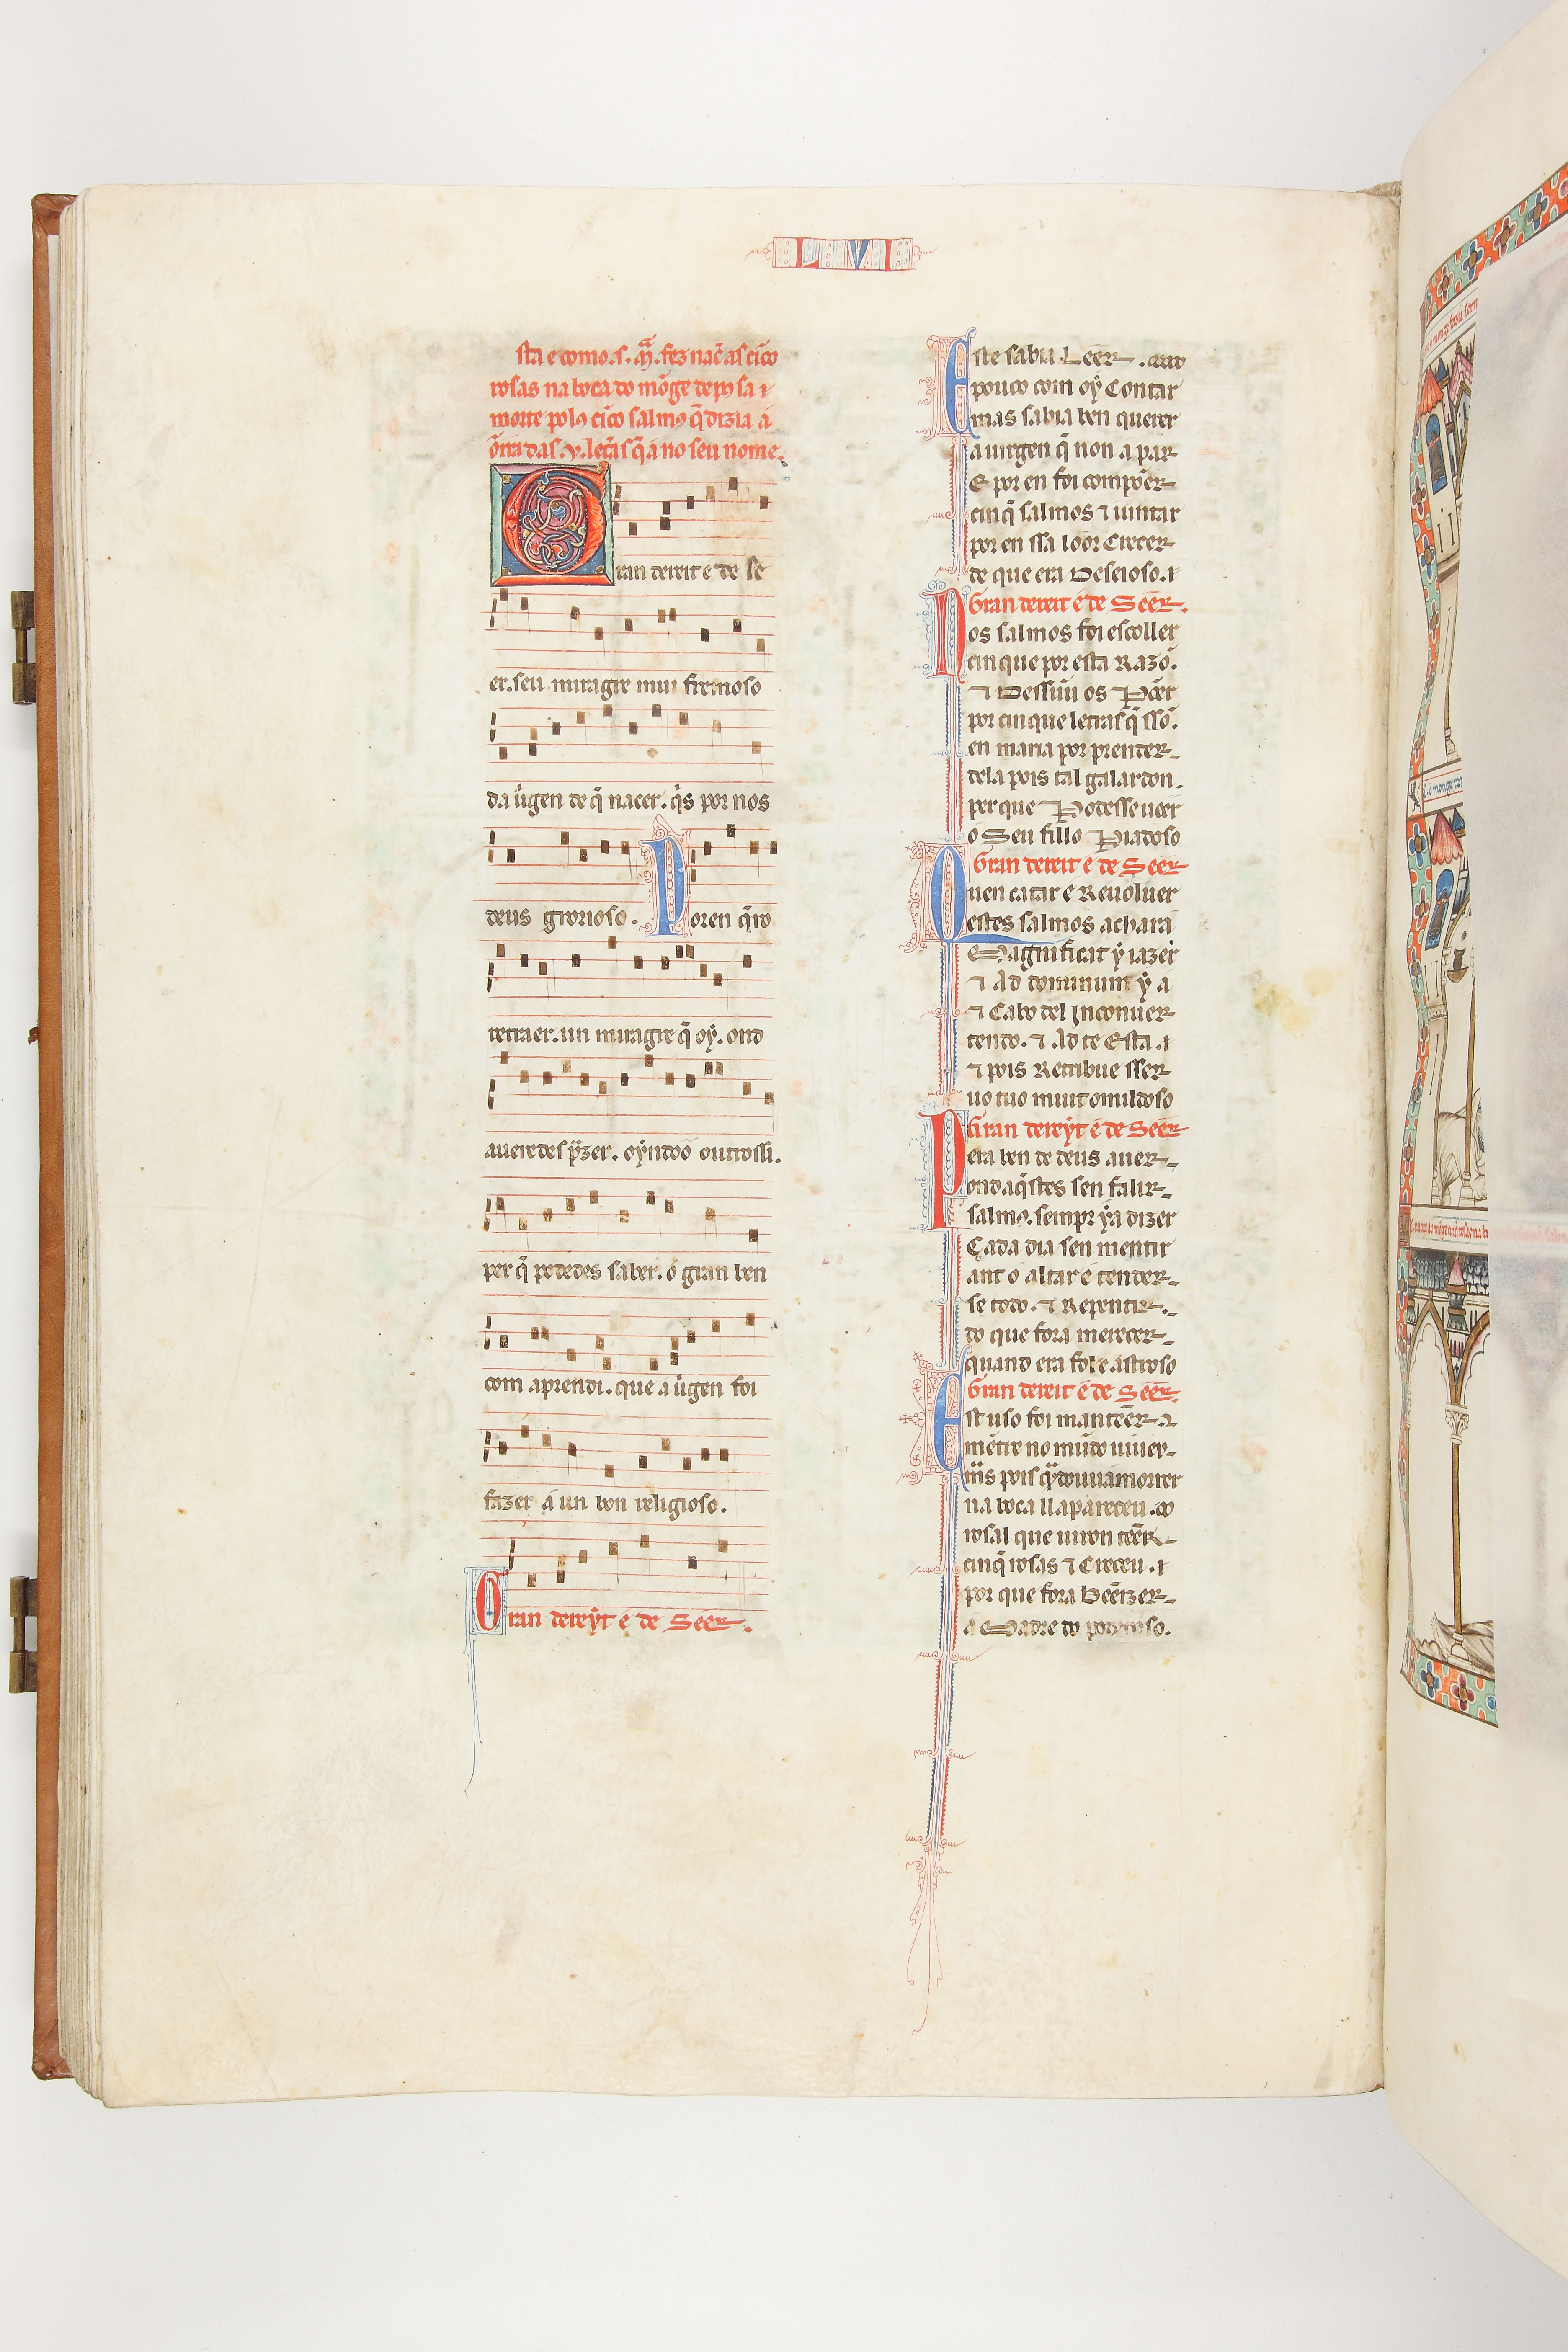 LVI
sta é como. s. Mª. fez naceͬ as cīco
rosas na boca do mōge depos sa
morte polos cīco salmos q̄ dizia á
ōrra das .v. letͣs q̄ á no seu nome.
Gran dereit é de se
er. seu miragre mui fremoso
da uͥgen de q̄ nacer. qͥs por nos
deus grorioso. Poren q̄ro
retraer. un miragre q̄ oẏ. ond
aueredes pͣzer. oẏndoó outrossi.
per q̄ podedes saber. ó gran ben
com aprendi. que a uͥgen foi
fazer á un bon religioso.
Gran dereẏt é de Seer.
Este sabia Leer.
pouco com oẏ Contar
mas sabia ben querer
a uirgen q̄ non a par
E por en foi compōer
cinq̄ salmos ⁊ iuntar
por en ssa loor Crecer
de que era Deseioso.
Gran dereit é de Seer.
Dos salmos foi escoller
cinque por esta Razō.
⁊ Dessūu os Pōer
por cinque letras q̄ ssō.
en maria por prender
dela pois tal galardon.
per que Podesse ueer
o Seu fillo Piadoso
Gran dereit é de Seer
Quen catar e Reuoluer
estes salmos achará
Magnificat ẏ iazer
⁊ Ad dominum ẏ á
⁊ Cabo del Inconuer
tendo. ⁊ Ad te Está.
⁊ pois Retribue sser
uo tuo muit omildoso
Gran dereẏt é de Seer
Pera ben de deus auer
ond aq̄stes sen falir
salmos. sempr ẏa dizer
Cada dia sen mentir
ant o altar e tender
se todo. ⁊ Repentir.
do que fora merecer
quand era fol e astroso
Gran dereit é de Seer.
Est uso foi mantēer
mētre no mūdo uiuer
mͣs pois qͣndo uuiámorrer
na boca ll apareceu.
rosal que uiron tēer
cinq̄ rosas ⁊ Creceu.
por que fora Bēeizer
á Madre do poderoso.